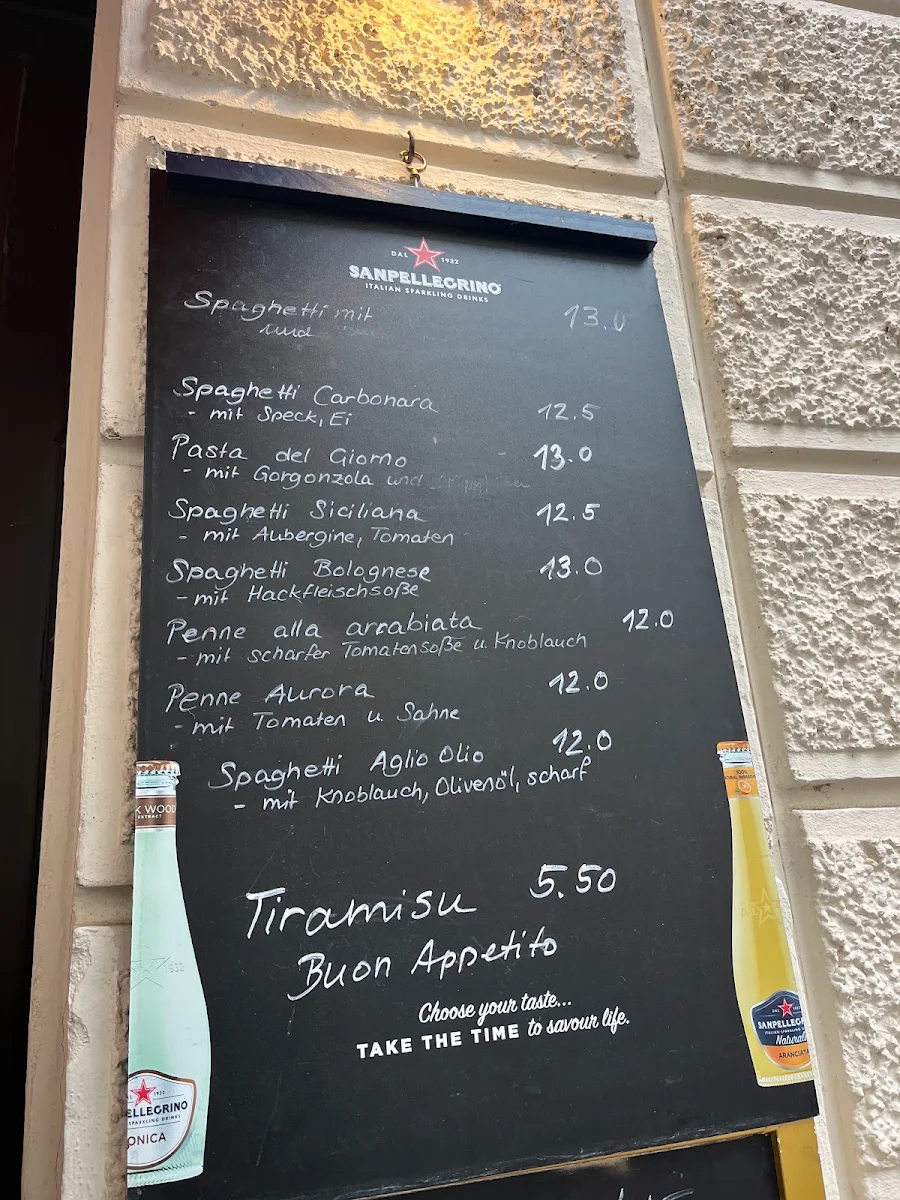 DAL 1932
SANPELLEGRINO
ITALIAN SPARKLING DRINKS
Spaghetti mit 13.0
und
Spaghetti Carbonara 12.5
- mit Speck, Ei
Pasta del Giorno - 13.0
- mit Gorgonzola und
Spaghetti Siciliana 12.5
- mit Aubergine, Tomaten
Spaghetti Bolognese 13.0
- mit Hackfleischsoße
Penne alla arrabiata 12.0
- mit scharfer Tomatensoße u. Knoblauch
Penne Aurora 12.0
- mit Tomaten u. Sahne
Spaghetti Aglio Olio 12.0
- mit Knoblauch, Olivenöl, scharf
Tiramisu 5.50
Buon Appetito
Choose your taste...
TAKE THE TIME to savour life.
K WOOD
EXTRACT
1932
ELLEGRINO
SPARKLING DRINKS
ONICA
100%
SANPELLEGR
Natural
ARANCIATA